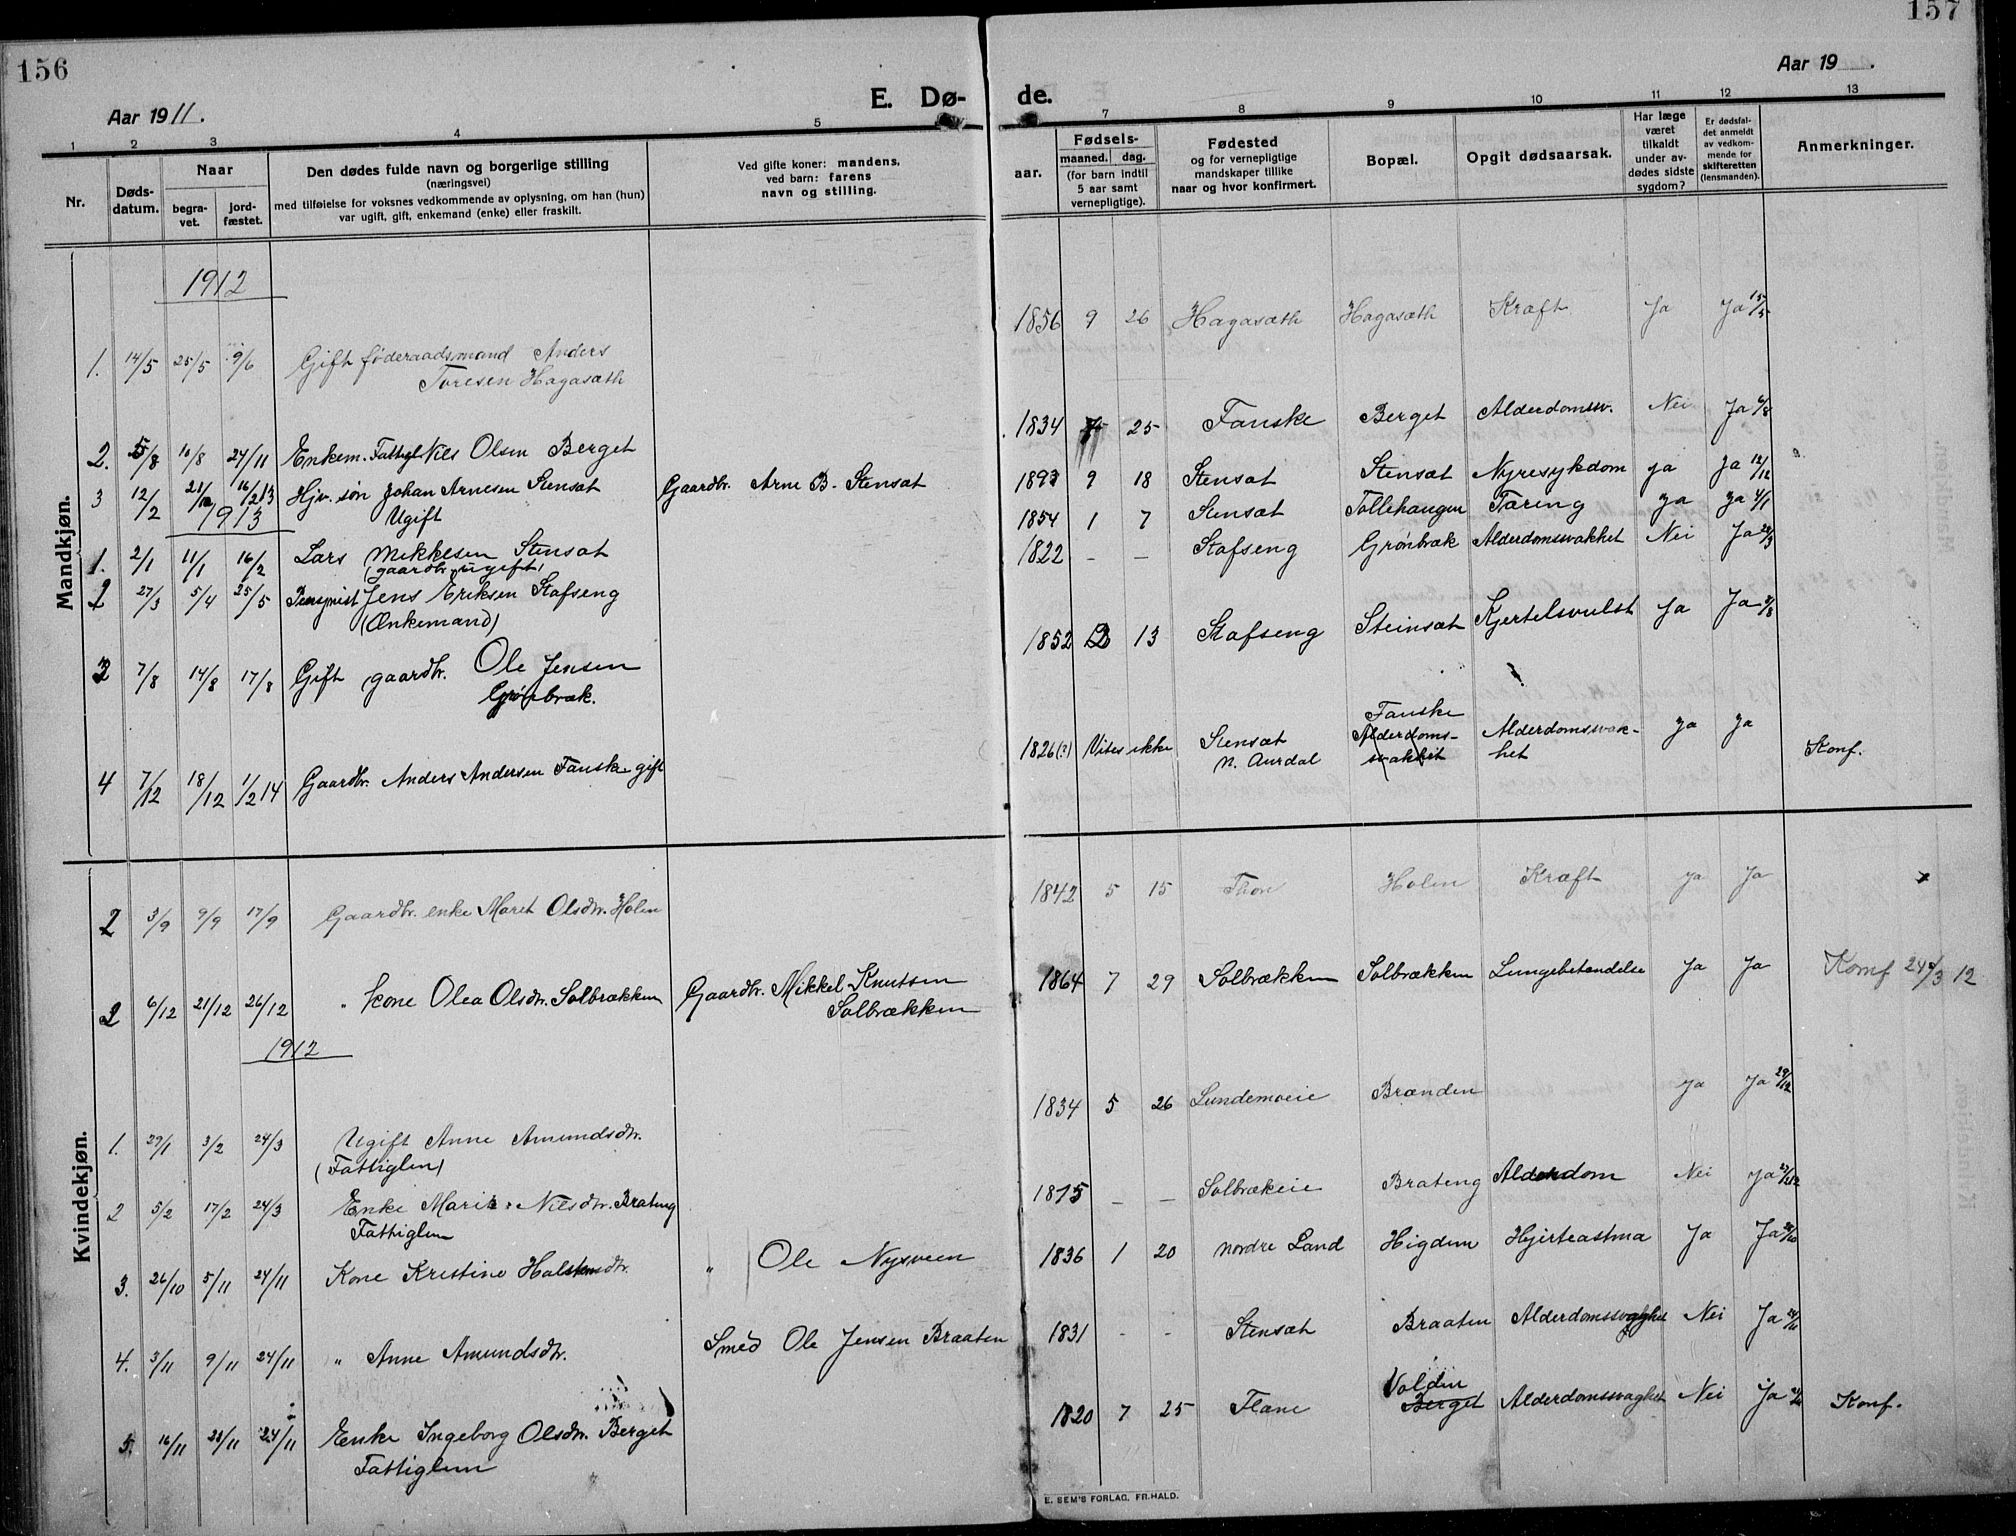 156
157
Aar 1911.
E. Dø-
de.
Aar 19    .
1 2 3 4 5
7 8 9 10 11 12 13
Nr.
Døds-
datum.
Naar
begra-
vet.
jord-
fæstet.
Den dødes fulde navn og borgerlige stilling
(næringsvei)
med tilføielse for voksnes vedkommende av oplysning, om han (hun)
var ugift, gift, enkemand (enke) eller fraskilt.
Ved gifte koner: mandens,
ved barn: farens
navn og stilling.
aar.
Fødsels-
maaned. dag.
(for barn indtil
5 aar samt
vernepligtige).
Fødested
og for vernepligtige
mandskaper tillike
naar og hvor konfirmert.
Bopæl.
Opgit dødsaarsak.
Har læge
været
tilkaldt
under av-
dødes sidste
sygdom?
Er dødsfal-
det anmeldt
av vedkom-
mende for
skifteretten
(lensmanden).
Anmerkninger.
Mandkjøn.
1912
1. 14/5 25/5 9/6 Gift føderaadsmand Anders
Toresen Hagasæth
1856 9 26 Hagasæth Hagasæth Kræft Ja Ja 15/5
2. 5/8 10/8 24/11 Enkem. Fattigl. Nils Olsen Berget
1834 25 Fanske Berget Alderdomssv. Nei Ja 6/8
3 12/2 16/2 13 Hjv. søn Johan Arnesen Stensæt Gaardbr. Arne B. Stensæt
Ugift
1893 9 18 Stensæt Stensæt Nyresykdom ja Ja 12/12
1913
1. 2/1 11/1 16/2 Lars Mikkesen Stensæt
(gaardbr. ugift)
1854 1 7 Stensæt Tollehaugen Tæring ja ja 4/1
2 27/3 5/4 25/5 Jens Eriksen Stafseng
(Enkemand)
1822 — — Stafseng Grønbræk Alderdomssvakhet Nei Ja 28/3
3 7/8 14/8 17/8 Gift gaardbr. Ole Jensen
Grønbræk.
1852 2 13 Stafseng Steinsæt Kjertelsvulst Ja Ja 8/8
4 7/12 18/12 1/2 14 Gaardbr. Anders Andersen Fanske gift
1826(?) Vites ikke Stensæt
N. Aurdal
Fanske
Alderdoms-
svakhet
Alderdomssvak-
het
ja ja Konf.
Kvindekjøn.
2 3/9 9/9 17/9 Gaardbr. enke Marit Olsdtr. Holen
1842 5 15 Thon Holen Kræft ja Ja x
2 6/12 21/12 26/12 " Kone Olea Olsdtr. Solbrækken Gaardbr. Mikkel Knutsen
Solbrækken
1864 7 29 Solbrækken Solbrækken Lungebetændelse Ja Ja Konf 24/3 12
1912
1. 29/1 3/2 24/3 Ugift Anne Amundsdtr.
(Fattiglem)
1834 5 26 Lundemoeie Brænden ja Ja 29/1 12
2 5/2 17/2 24/3 Enke Marit Nilsdtr. Brateng
Fattiglem
1815 — — Solbrækeie Brateng Alderdom Nei ja
3. 26/10 5/11 24/11 Kone Kristine Halstensdtr. " Ole Nysveen
1836 1 20 nordre Land Higden Hjerteastma Ja Ja
4. 3/11 9/11 24/11 " Anne Amundsdtr. Smed Ole Jensen Braaten
1831 - - Stensæt Braaten Alderdomssvaghet Nei Ja
5. 16/11 23/11 24/11 Enke Ingeborg Olsdtr. Berget
Fattiglem
1820 7 25 Flane Volden
Berget
Alderdomssvaghet Nei Ja Konf.
E. SEM'S FORLAG, FR.HALD.